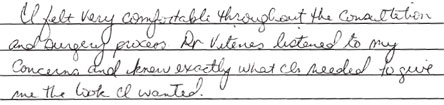 I felt very comfortable throughout the consultation
and surgery process Dr Vitenas listened to my
concerns and knew exactly what I needed to give
me the look I wanted.